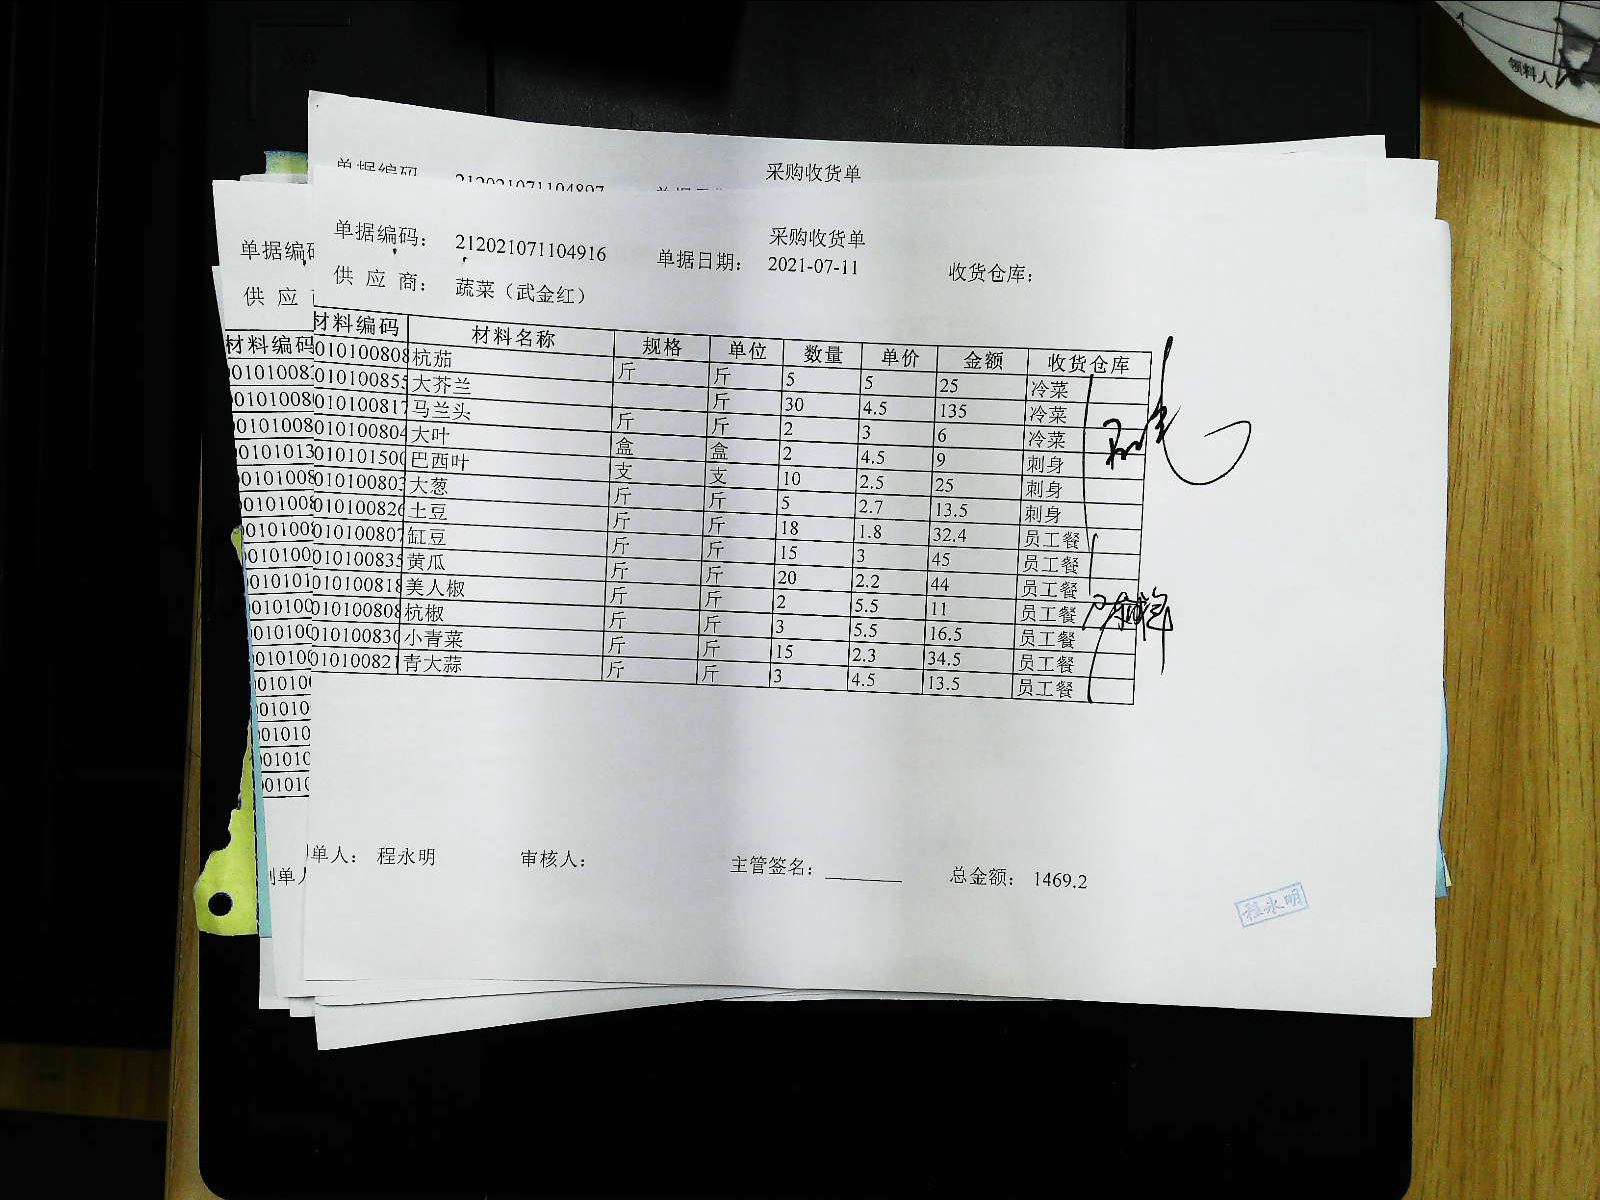 领料人
采购收货单
单据编码
212021071104897
采购收货单
单据编码： 212021071104916 单据日期： 2021-07-11 收货仓库：
供 应 商： 蔬菜（武金红）
材料编码 材料名称 规格 单位 数量 单价 金额 收货仓库
010100808 杭茄 斤 斤 5 5 25 冷菜
010100855 大芥兰 斤 30 4.5 135 冷菜
010100817 马兰头 斤 斤 2 3 6 冷菜
010100804 大叶 盒 盒 2 4.5 9 刺身
010101500 巴西叶 支 支 10 2.5 25 刺身
010100803 大葱 斤 斤 5 2.7 13.5 刺身
010100826 土豆 斤 斤 18 1.8 32.4 员工餐
010100807 缸豆 斤 斤 15 3 45 员工餐
010100835 黄瓜 斤 斤 20 2.2 44 员工餐
010100818 美人椒 斤 斤 2 5.5 11 员工餐
010100808 杭椒 斤 斤 3 5.5 16.5 员工餐
010100830 小青菜 斤 斤 15 2.3 34.5 员工餐
010100821 青大蒜 斤 斤 3 4.5 13.5 员工餐
单人： 程永明 审核人： 主管签名： 总金额： 1469.2
程永明
单据编码
供 应
材料编码
制单人